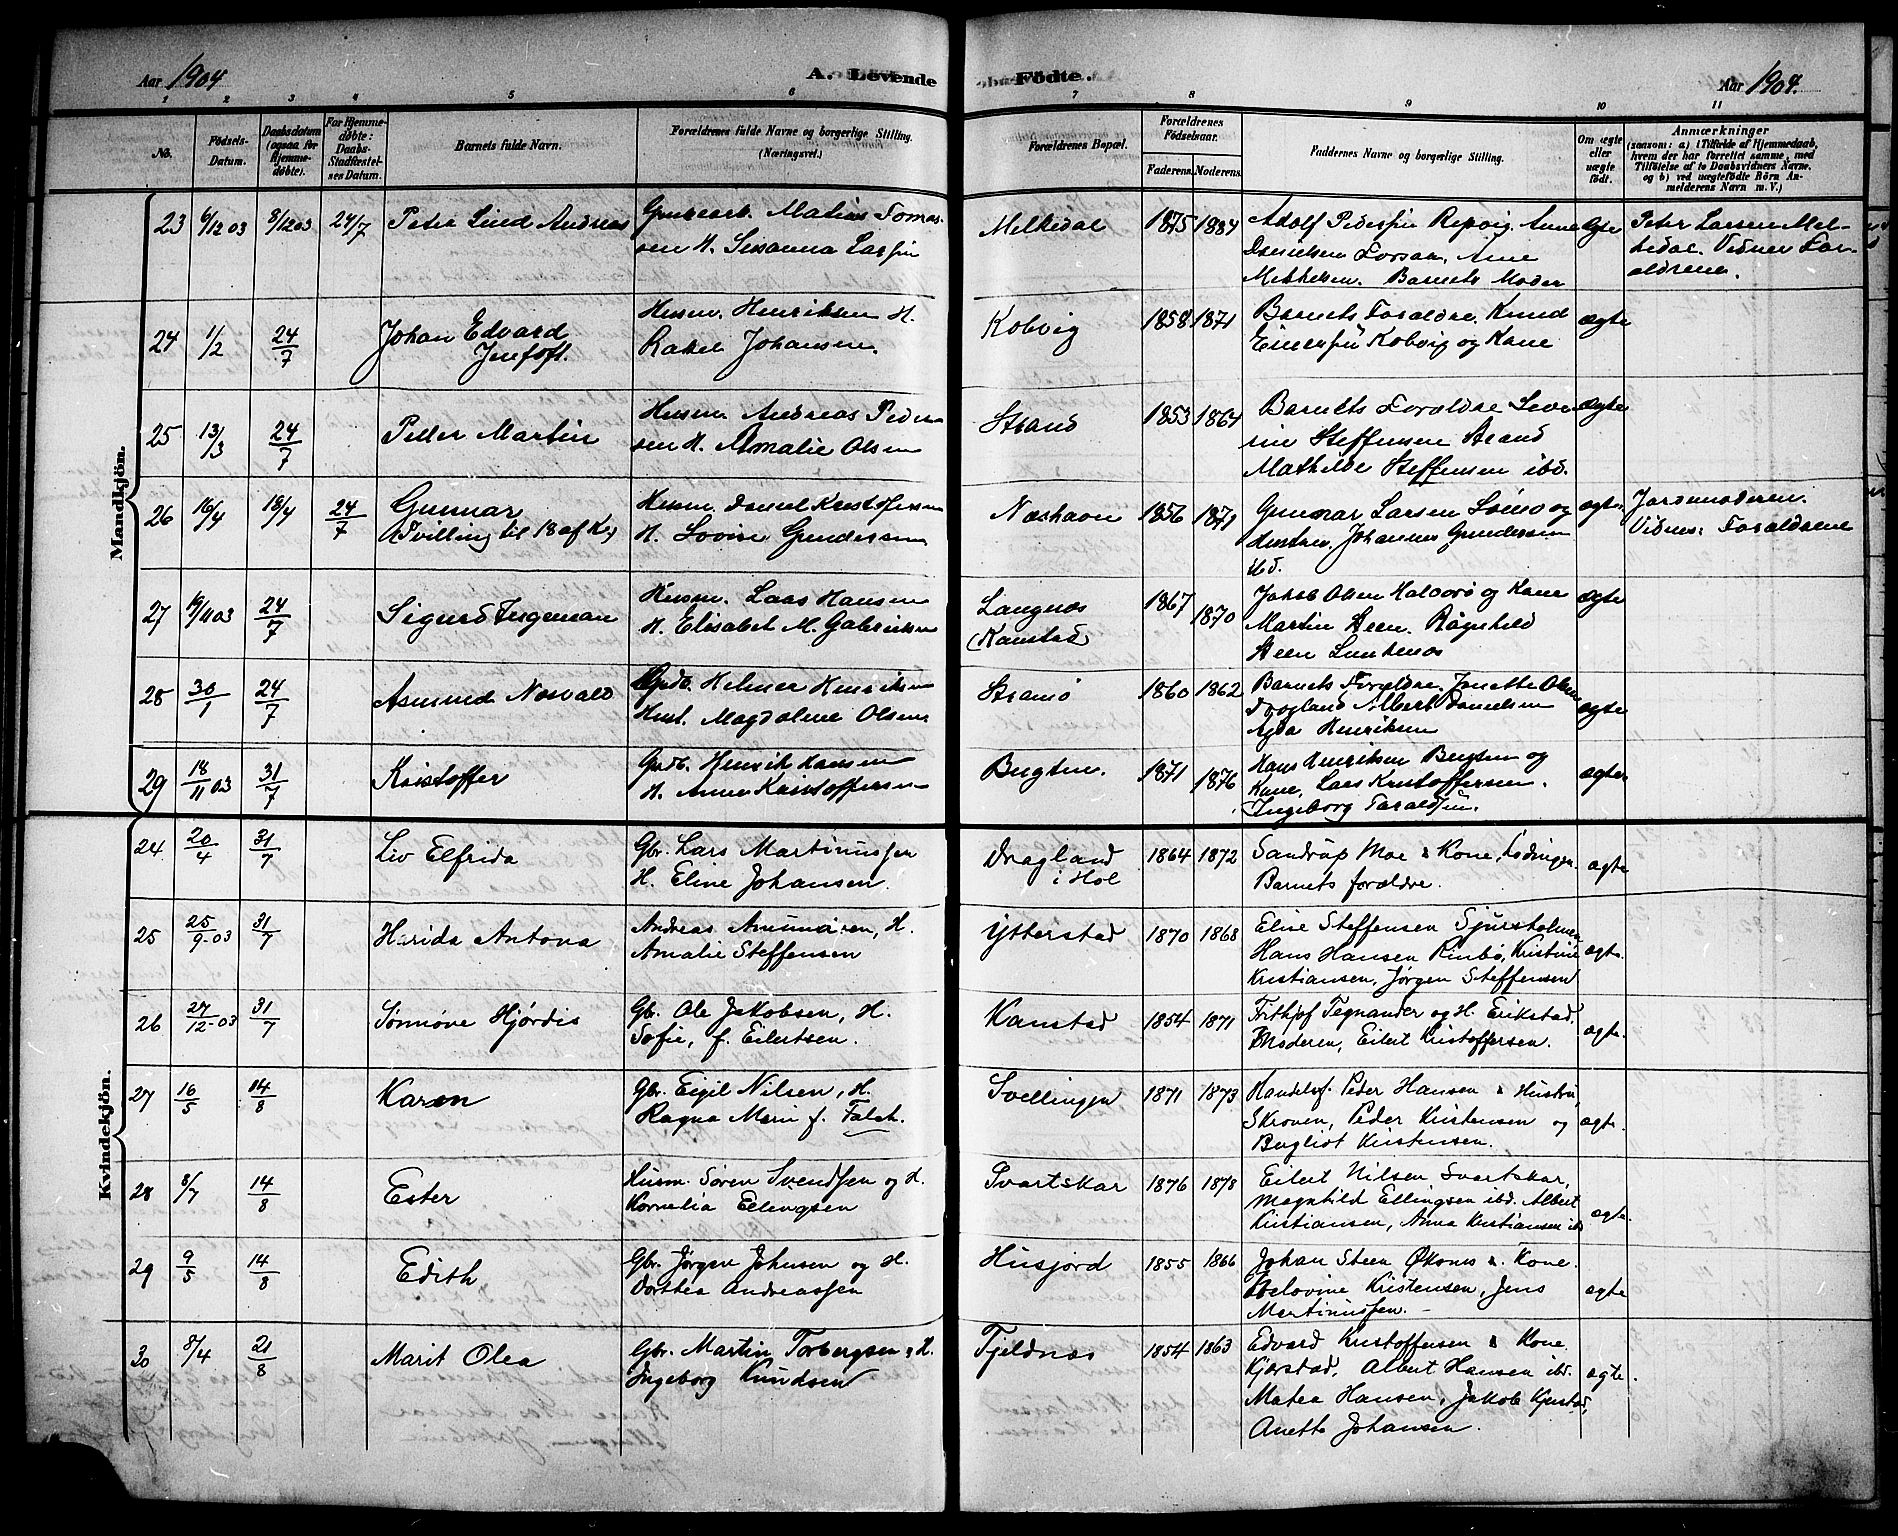 Aar 1904
A. Levende
Födte.
Aar 1904.
1 2 3 4 5 6 7 8 9 10 11
No.
Födsels-
Datum.
Daabsdatum
(ogsaa for
Hjemme-
døbte).
For Hjemme-
døbte:
Daabs-
Stadfæstel-
ses Datum.
Barnets fulde Navn.
Forældrenes fulde Navne og borgerlige Stilling.
(Næringsvei.)
Forældrenes Bopæl.
Forældrenes
Födselsaar.
Faderens. Moderens.
Faddernes Navne og borgerlig Stilling.
Om ægte
eller
uægte
födt.
Anmærkninger
(saasom: a) i Tilfælde af Hjemmedaab,
hvem der har forrettet samme, med
Tilföielse af to Daabsvidners Navne,
og b) ved uægtefödte Börn An-
melderens Navn m. V.)
Mandkjön.
23 6/12 03 8/12 03 24/7 Peter Lind Andreas
Matias Tomas-
sen H. Susanna Larsen
Melkedal 1875 1884
Adolf Pedersen Repvig. Anne
Forsaa, Arne
Mikkelsen. Barnets Moder
ægte
Peter Larsen Mel-
kedal. Vidner For-
ældrene.
24 1/2 24/7 Johan Edvard
Husm. Henriksen H.
Rakel Johansen.
Kobvig 1858 1871
Barnets Forældre. Knud
Einersen Kobvig og Kone
ægte
25 13/3 24/7 Peder Martin
Husm. Andreas Peder-
sen H. Amalie Olsen
Strand 1853 1864
Barnets Forældre Seve-
rin Steffensen Strand
Mathilde Steffensen ibd.
ægte
26 16/4 18/4 24/7 Gunnar
(Tvilling til 18 af Kv.)
Husm. Daniel Kristoffersen
H. Lovise Gundersen
Næshavn 1856 1871
Gunnar Larsen og
Hustru, Johannes Gundersen
ibd.
ægte
Jordmoderen.
Vidnes: Forældrene
27 19/11 03 24/7 Sigurd Ingeman
Husm. Laas Hansen
H. Elisabet M. Gabrielsen
Langnæs
(Kanstad)
1867 1870
Jakob Olsen og Kone
Martin Steen. Ragnhild
Steen
ægte
28 30/1 24/7 Asmund Næsvald
Gpdb. Helmer Henriksen
Hust. Magdalene Olsen
Stramø 1860 1862
Barnets Forældre. Jenette Olsen
Dragland Albert Danielsen
Agda Henriksen
ægte
29 18/11 03 31/7 Kristoffer
Gpdb. Henrik Hansen
H. Anna Kristoffersen
Bugten. 1871 1876
Hans Henriksen Bugten og
Kone, Lars Kristoffersen.
Ingeborg Taraldsen.
ægte
Kvindekjön.
24 20/4 31/7 Liv Elfrida
Gbr. Lars Martinussen
H. Eline Johansen.
Dragland
i Hol
1864 1872
Sandrup Moe & Kone, Lødingen.
Barnets forældre.
ægte
25 25/9-03 31/7 Harida Antona
Andreas Amundsen, H.
Amalie Steffensen
Ytterstad 1870 1868
Elise Steffensen Sjursholmen
Hans Hansen Rinbø, Kristine
Kristiansen, Jørgen Steffensen
ægte.
26 27/12-03 31/7 Sønnøve Hjørdis
Gb. Ole Jakobsen, H.
Sofie, f. Eilertsen.
Kanstad 1854 1871
Frithjof Tegnander og H. Erikstad,
Moderen, Eilert Kristoffersen.
ægte.
27 16/5 14/8 Karen
Gbr. Eigil Nilsen, H.
Ragna Marie f. Falch.
Svellingen 1871 1873
Handelsf. Peder Hansen & Hustru,
Skroven, Peder Kristensen og
Bergliot Kristensen.
ægte.
28 8/7 14/8 Ester
Husm. Søren Svendsen og H.
Kornelia Ellingsen
Svartskar 1876 1878
Eilert Nilsen, Svartskar,
Magnhild Ellingsen ibd. Albert
Kristiansen, Anna Kristiansen ibd
ægte.
29 9/5 14/8 Edith
Gbr. Jørgen Johnsen og H.
Dorthea Andreassen
Husjord 1855 1866
Johan Steen Øksnes & Kone.
Helovine Kristensen, Jens
Martinussen.
ægte
30 8/4 21/8 Marit Olea
Gbr. Martin Torbergsen & H.
Ingeborg Knudsen
Fjeldnæs 1854 1863
Edvard Kristoffersen & Kone.
Kjærstad, Albert Hansen ibd.
Matea Hansen, Jakob Kjerstad,
Anette Johansen.
ægte.